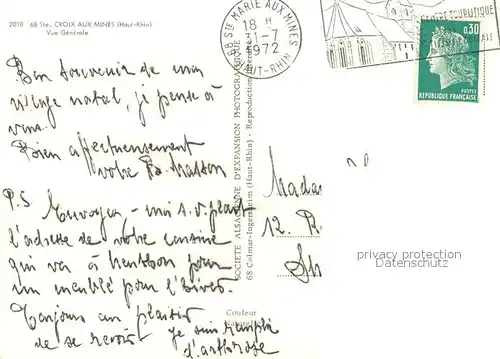 2010 68 Ste. CROIX AUX MINES (Haut-Rhin)
Vue Générale
68 STE MARIE AUX MINES
18 H
31-7
1972
HAUT-RHIN
CENTRE TOURISTIQUE
0,30
POSTES
REPUBLIQUE FRANÇAISE
Bon souvenir de mon
village natal, je pense à
vous.
Bien affectueusement
votre B. Masson
P.S Envoyez-moi s.v.plait
l'adresse de votre cousine
qui va à pour
un meublé pour l'hiver.
Toujours au plaisir
de se revoir je suis remplie
d'arthrose
SOCIÉTÉ ALSACIENNE D'EXPANSION PHOTOGRAPHIQUE
68 Colmar-Ingersheim (Haut-Rhin) - Reproduction
Couleur
Madas
12. R
St
privacy protection
DANKSAMMLER.DE